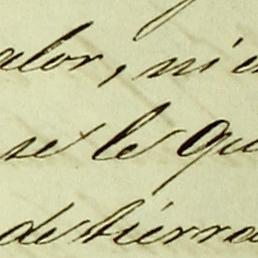 alor, ni e
se le qu
de tierra